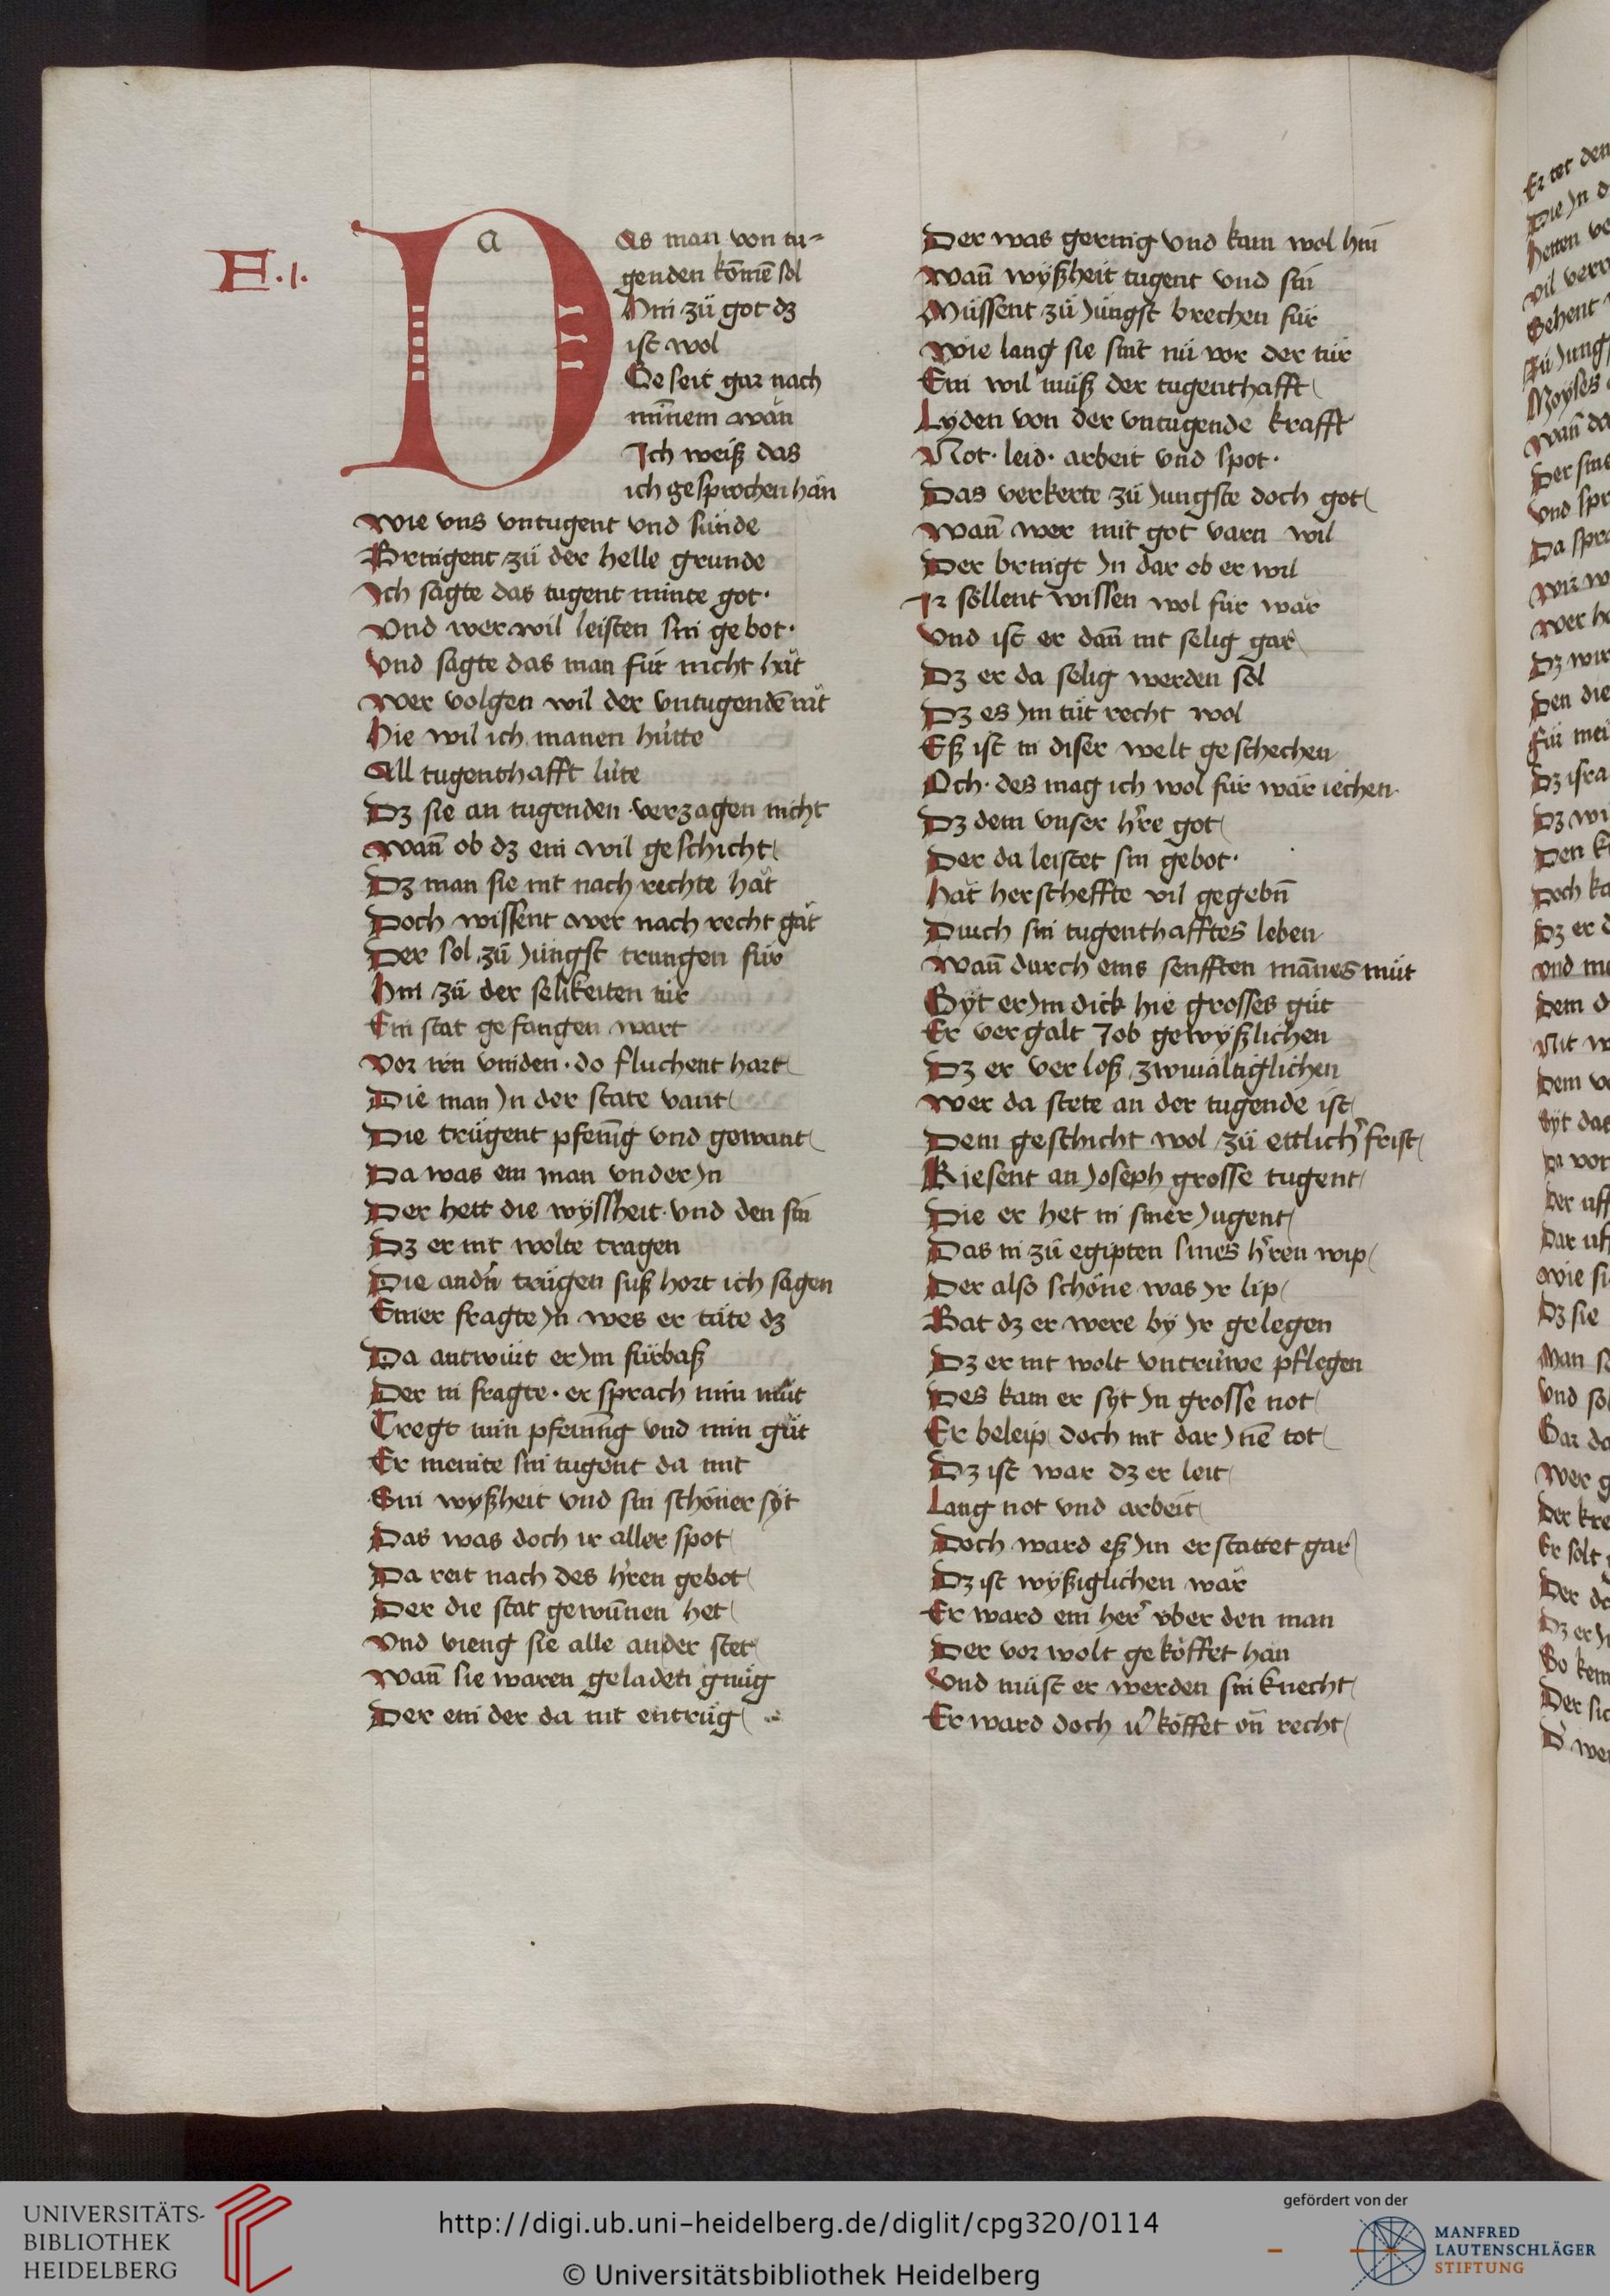 E.1.
a
Das man von tu-
genden kom̄e sol
Hin zü got dz
ist wol
Geseit gar nach
mīnem wän
Ich weiß das
ich gesprochen hän
Wie vns vntugent vnd sünde
Bringent zü der helle grunde
Ich sagte das tugent minte got·
Vnd wer wil leisten sin gebot·
Vnd sagte das man für nicht hät
Wer volgen wil der vntugendē rät
Hie wil ich manen hütte
All tugenthafft lüte
Dz sie an tugenden verzagen nicht
Wañ ob dz ein wil geschicht
Dz man sie nit nach rechte hät
Doch wissent wer nach recht gät
Der sol zü Jüngst trungen für
Hin zü der selikeiten tür
Ein stat gefangen wart
Vor irn vinden· do fluchent hart
Die man Jn der state vant
Die trügent pfenīg vnd gewant
Da was ein man vnder Jn
Der hett die wyssheit vnd den sin
Dz er nit wolte tragen
Die andn̄ trügen suß hort ich sagen
Einer fragte Jn wes er täte dz
Da antwürt er Jm fürbaß
Der in fragte· er sprach min müt
Tregt min pfenīng vnd min güt
Er meinte sin tugent da mit
Sin wyßheit vnd sin schöner syt
Das was doch ir aller spot
Da reit nach des hr̄en gebot
Der die stat gewūnen het
Vnd vieng sie alle an der stet
Wañ sie waren geladen gnüg
Der ein der da nit entrüg
Der was gering vnd kam wol hin
Wañ wyßheit tugent vnd sin
Müssent zü Jüngst brechen für
Wie lang sie sint nü vor der tür
Ein wil müß der tugenthafft
Lyden von der vntugende krafft
Not· leid· arbeit vnd spot·
Das verkerte zü Jungste doch got
Wañ wer mit got varn wil
Der bringt Jn dar ob er wil
Ir söllent wissen wol für wär
Vnd ist er dañ nit selig gar
Dz er da selig werden sol
Dz es Jm tüt recht wol
Eß ist in diser welt geschechen
Och· des mag ich wol für wär iechen
Dz dem vnser hr̄e got
Der da leistet sin gebot·
Hät herscheffte vil gegebn̄
Durch sin tugenthafftes leben
Wañ durch eins senfften mañes müt
Gyt er Jm dick hie grosses güt
Er vergalt Job gewyßlichen
Dz er verloß zwiualtiglichen
Wer da stete an der tugende ist
Dem geschicht wol zü ettlichr̄ frist
Kiesent an Joseph grosse tugent
Die er het in siner Jugent
Das in zü egipten sines hr̄ren wip
Der also schöne was Jr lip
Bat dz er were by Jr gelegen
Dz er nit wolt vntrüwe pflegen
Des kam er syt Jn grosse not
Er beleip doch nit dar Jnē tot
Dz ist war dz er leit
Lang not vnd arbeit
Doch ward eß Jm erstattet gar
Dz ist wyßiglichen wär
Er ward ein her̄ vber den man
Der vor wolt geköffet han
Vnd müst er werden sin knecht
Er ward doch v̄köffet on̄ recht
UNIVERSITÄTS-
BIBLIOTHEK
HEIDELBERG
http://digi.ub.uni-heidelberg.de/diglit/cpg320/0114
© Universitätsbibliothek Heidelberg
gefördert von der
MANFRED
LAUTENSCHLÄGER
STIFTUNG